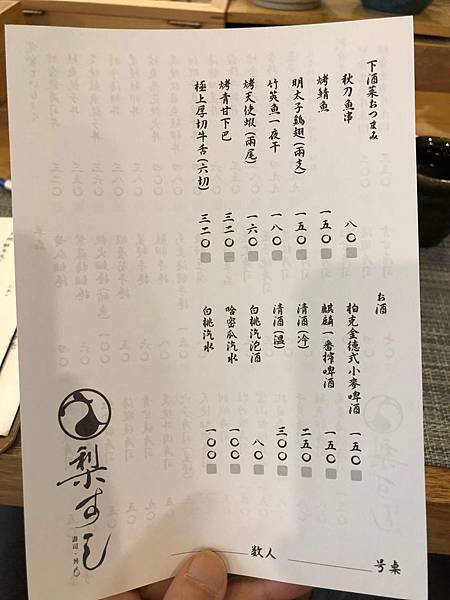 下酒菜おつまみ
秋刀魚串 八〇
烤鯖魚 一五〇
明太子鷄翅(兩支) 一五〇
竹筴魚一夜干 一八〇
烤天使蝦(兩尾) 一六〇
烤青甘下巴 三二〇
極上厚切牛舌(六切) 三二〇
お酒
柏克金德式小麥啤酒 一五〇
麒麟一番搾啤酒 一五〇
清酒(冷) 二五〇
清酒(溫) 三〇〇
白桃汽泡酒 八〇
哈密瓜汽水 一〇〇
白桃汽水 一〇〇
梨すし
壽司・丼
人数
桌号